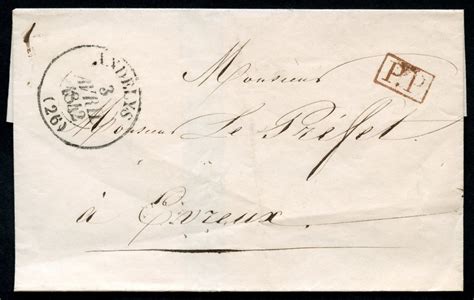 ANDELYS
3
AVRIL
1842
(26)
P.P.
Monsieur
Monsieur Le Préfet
à Evreux